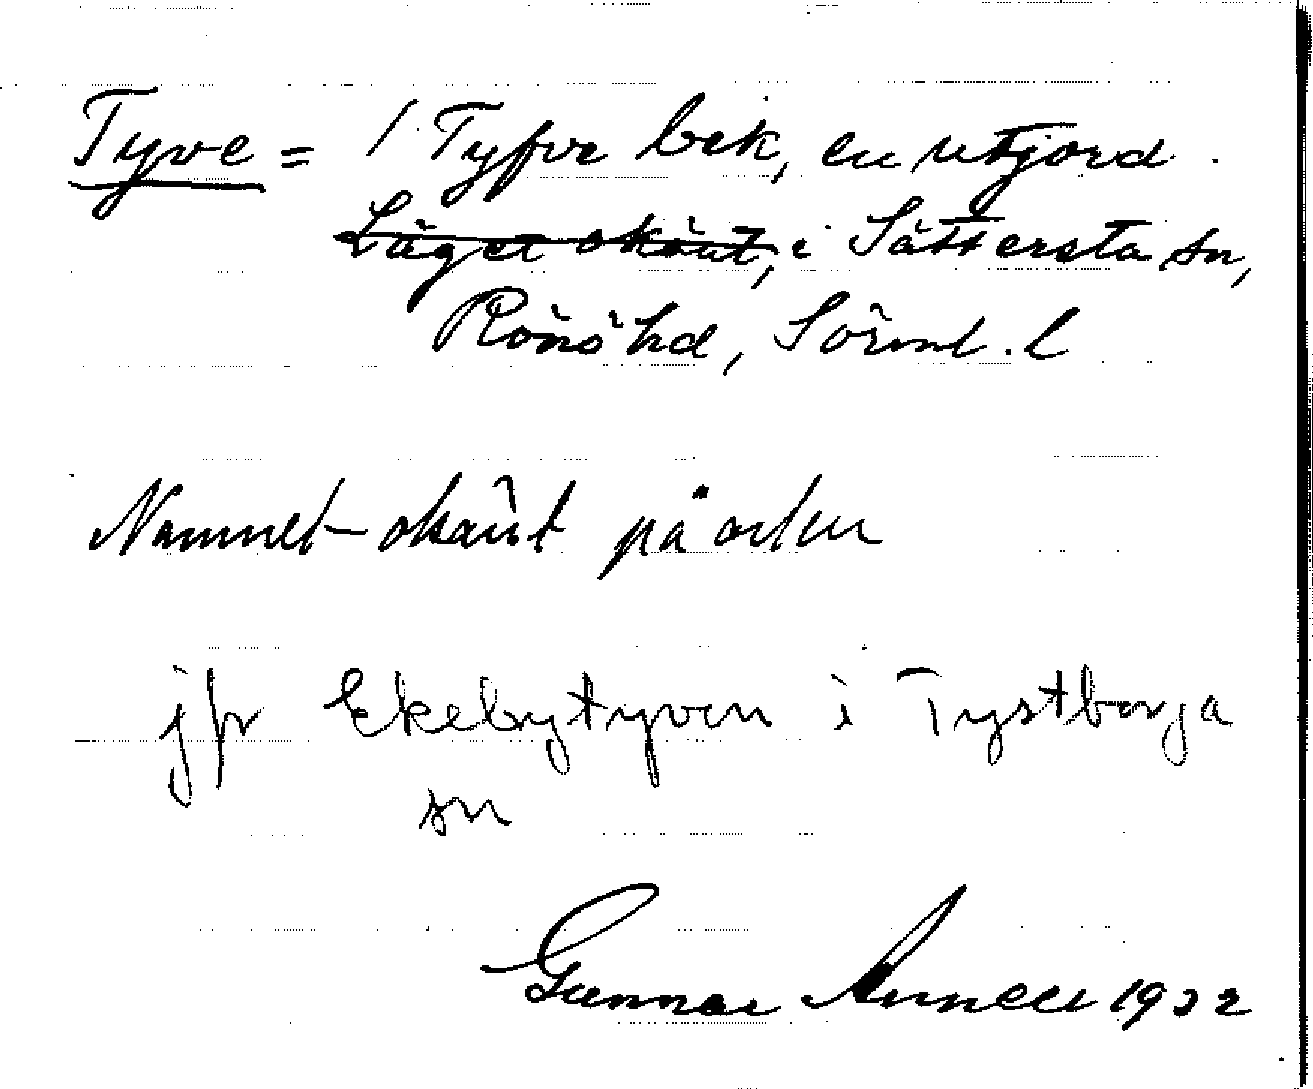 Tyve = 1 Tyfve bek, en utjord.
Läget okänt, i Sättersta sn,
Rönö hd, Sörml. l
Namnet okänt på orten
jfr Ekebytyven i Tystberga
sn
Gunnar 1932